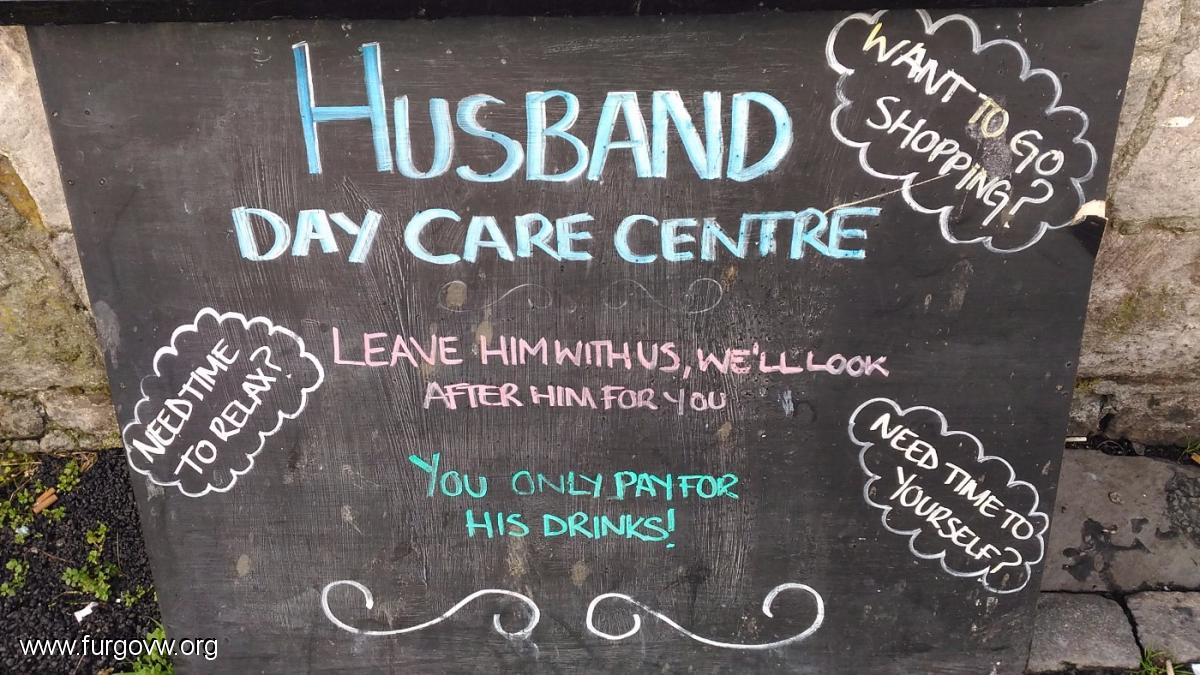 HUSBAND
DAY CARE CENTRE
WANT TO GO
SHOPPING?
LEAVE HIM WITH US, WE'LL LOOK
AFTER HIM FOR YOU
NEED TIME
TO RELAX?
YOU ONLY PAY FOR
HIS DRINKS!
NEED TIME TO
YOURSELF?
www.furgovw.org